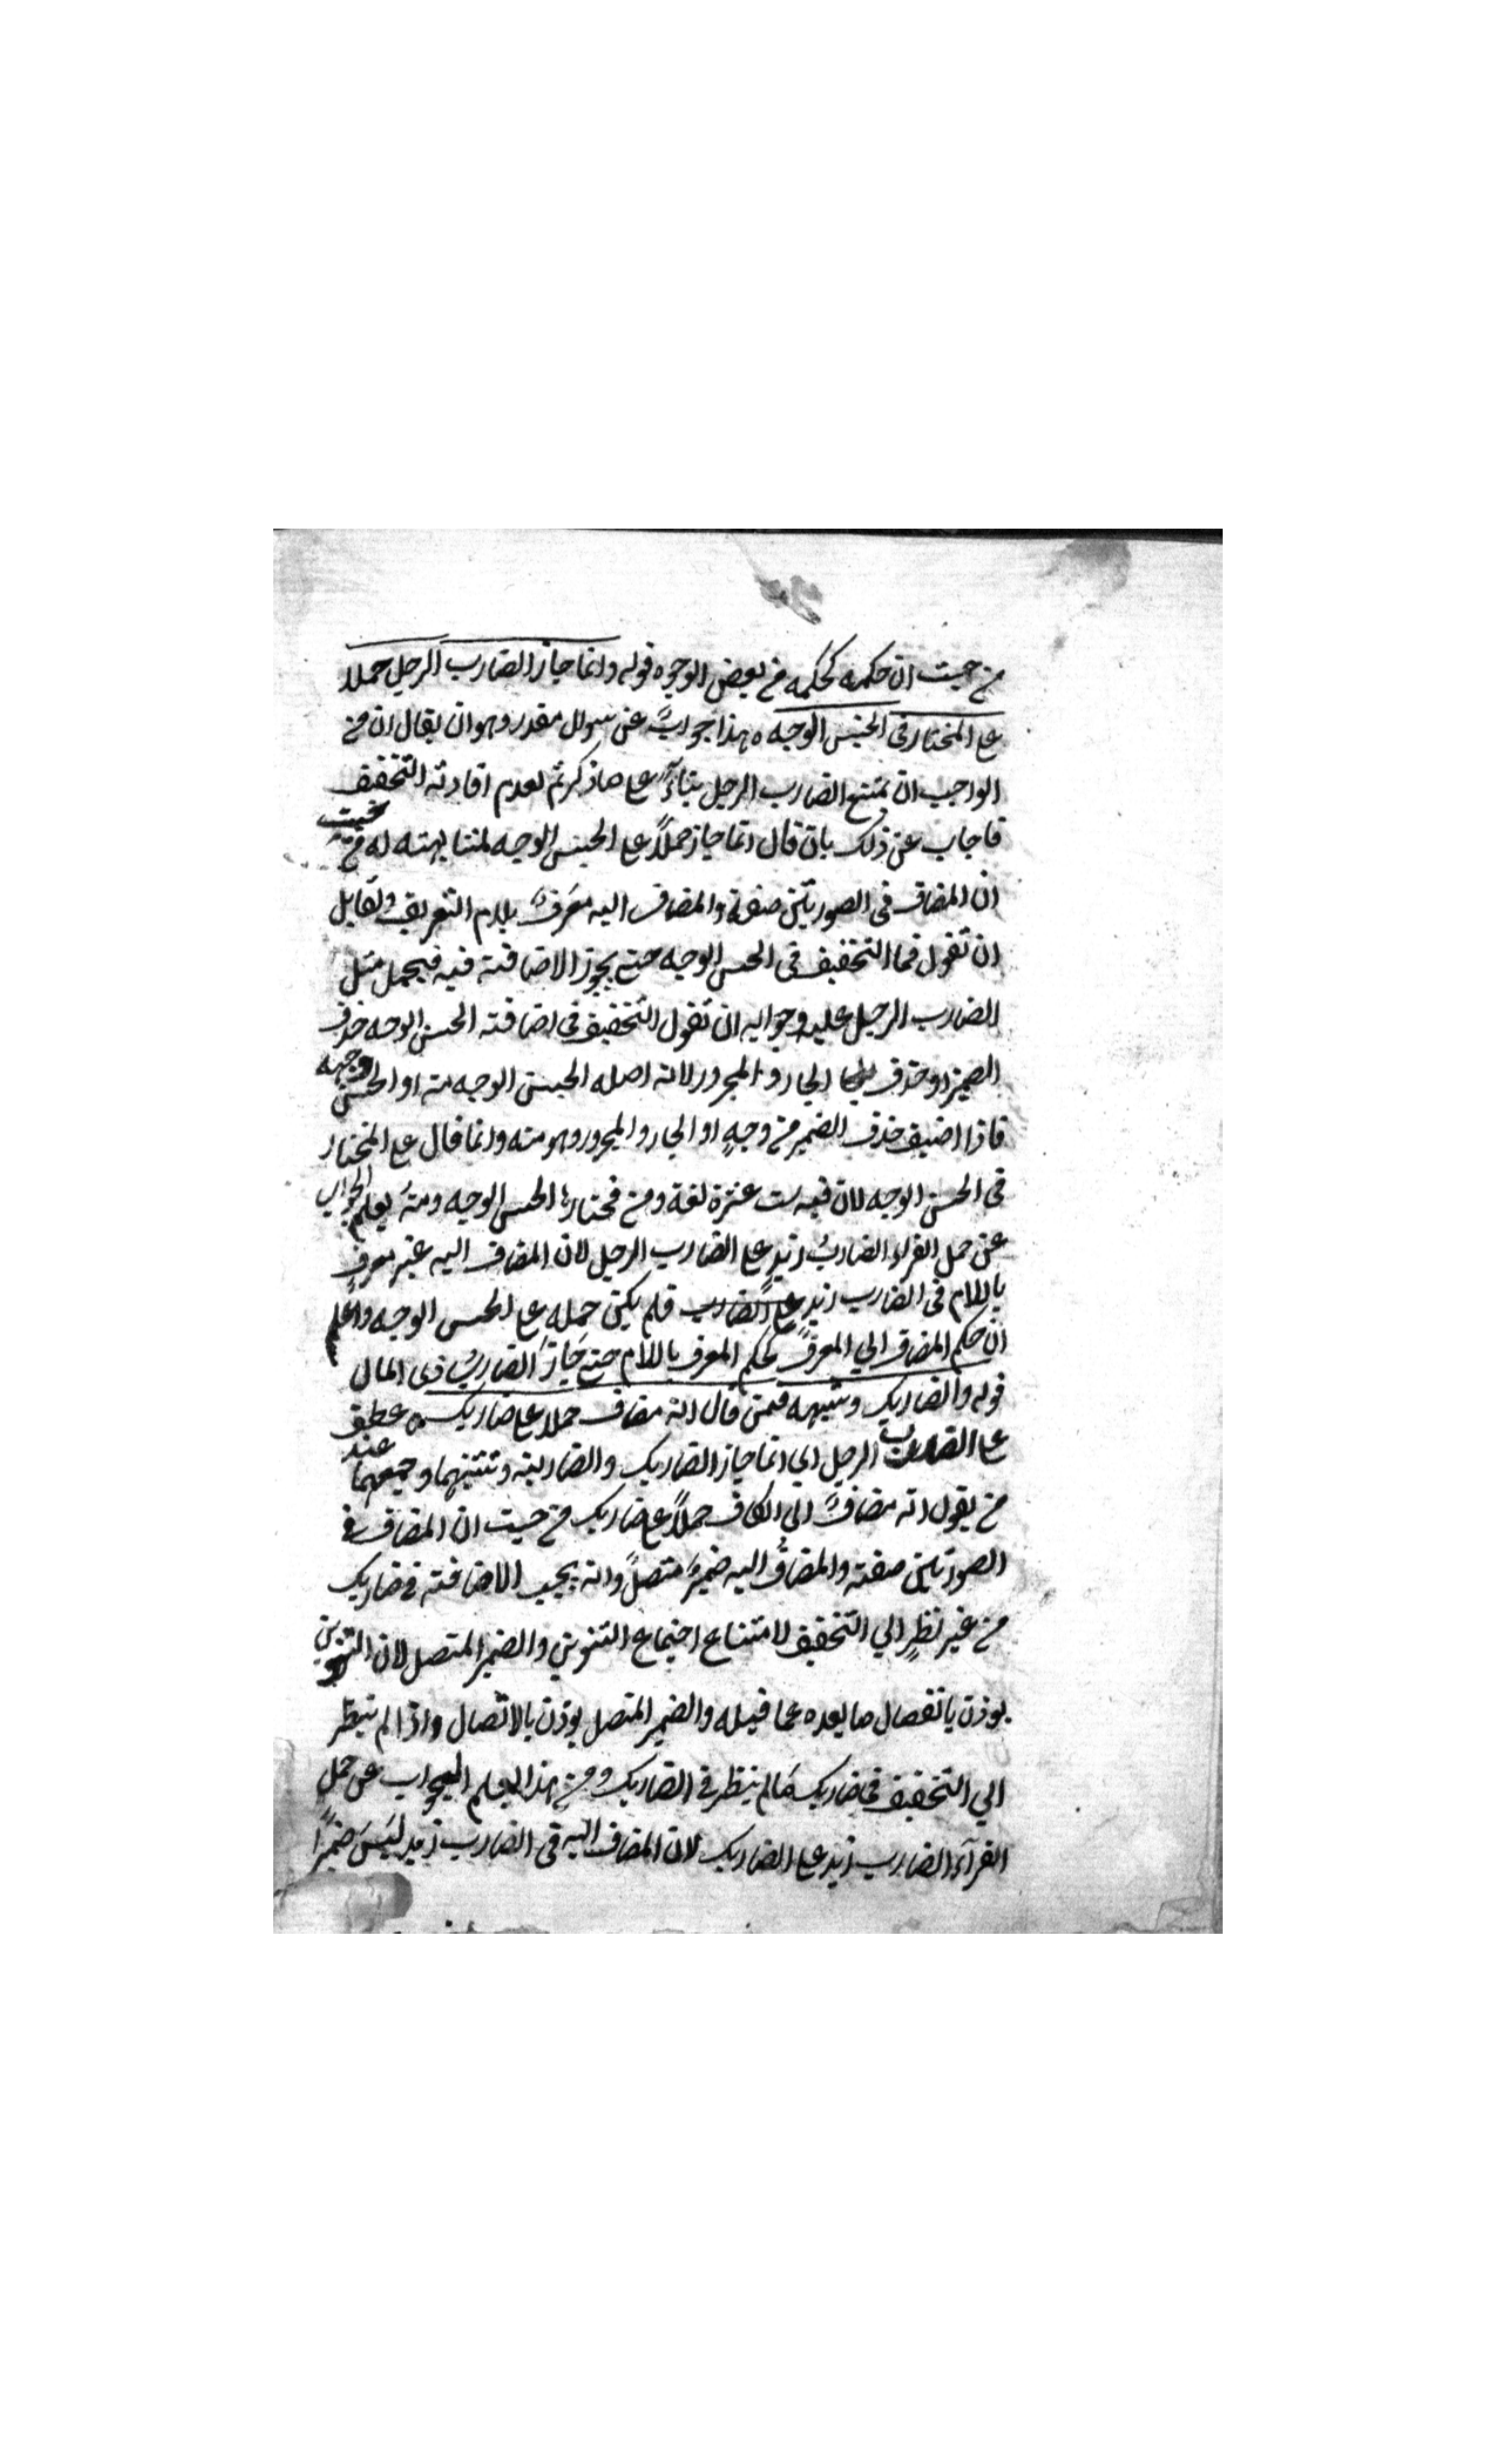 من حيث ان حكمه كحكمه من بعض الوجوه قوله وانما جاز الضارب الرجل حملا
على المختار فى الحسن الوجه هذا جوابٌ عن سوال مقدر وهو ان يقال ان من
الواجب ان يمتنع الضارب الرجل بناءً على ما ذكرتم لعدم افادته التخفيف
فاجاب عن ذلك بان قال انما جاز حملاً على الحسن الوجه لمشابهته له من حيث
ان المضاف فى الصورتين صفة والمضاف اليه معرفٌ بلام التعريف ولقايل
ان تقول فما التخفيف فى الحسن الوجه حتى يجوز الاضافة فيه فيحمل مثل
الضارب الرجل عليه وجوابه ان تقول التخفيف فى اضافة الحسن الوجه حذف
الضمير او حذف الجار والمجرور لانه اصله الحسن الوجه منه او الحسن وجهه
فاذا اضيف حذف الضمير من وجهٍ او الجار والمجرور وهو منه وانما قال على المختار
فى الحسن الوجه لان فيه ست عشرة لغة ومن مختارها الحسن الوجه ومنه يعلم الجواب
عن حمل الفراء الضاربُ زيدٍ على الضارب الرجل لان المضاف اليه غير معرفٍ
باللام فى الضارب زيد على الضارب فلم يكن حمله على الحسن الوجه واعلم
ان حكم المضاف الي المعرف كحكم المعرف باللام حتى جاز الضاربُ ذى المال
قوله والضاربك وشبهه فمن قال انه مضاف حملا على ضاربك ه عطف
على الضارب الرجل اي انما جاز الضاربك والضاربيه وتثنيتهما وجمعهما عند
من يقول انه مضافٌ الى الكاف حملاً على ضاربك من حيث ان المضاف فى
الصورتين صفة والمضافُ اليه ضميرٌ متصلٌ وانه يجب الاضافة فى ضاربك
من غير نظرٍ الي التخفيف لامتناع اجتماع التنوين والضمير المتصل لان التنوين
يوذن بانفصال ما بعده عما قبله والضمير المتصل يوذن بالاتصال واذا لم ينظر
الي التخفيف فى ضاربك لم ينظر فى الضاربك ومن هذا يعلم الجواب عن حمل
الفرآء الضارب زيد على الضاربك لان المضاف اليه فى الضارب زيد ليسَ ضميرًا